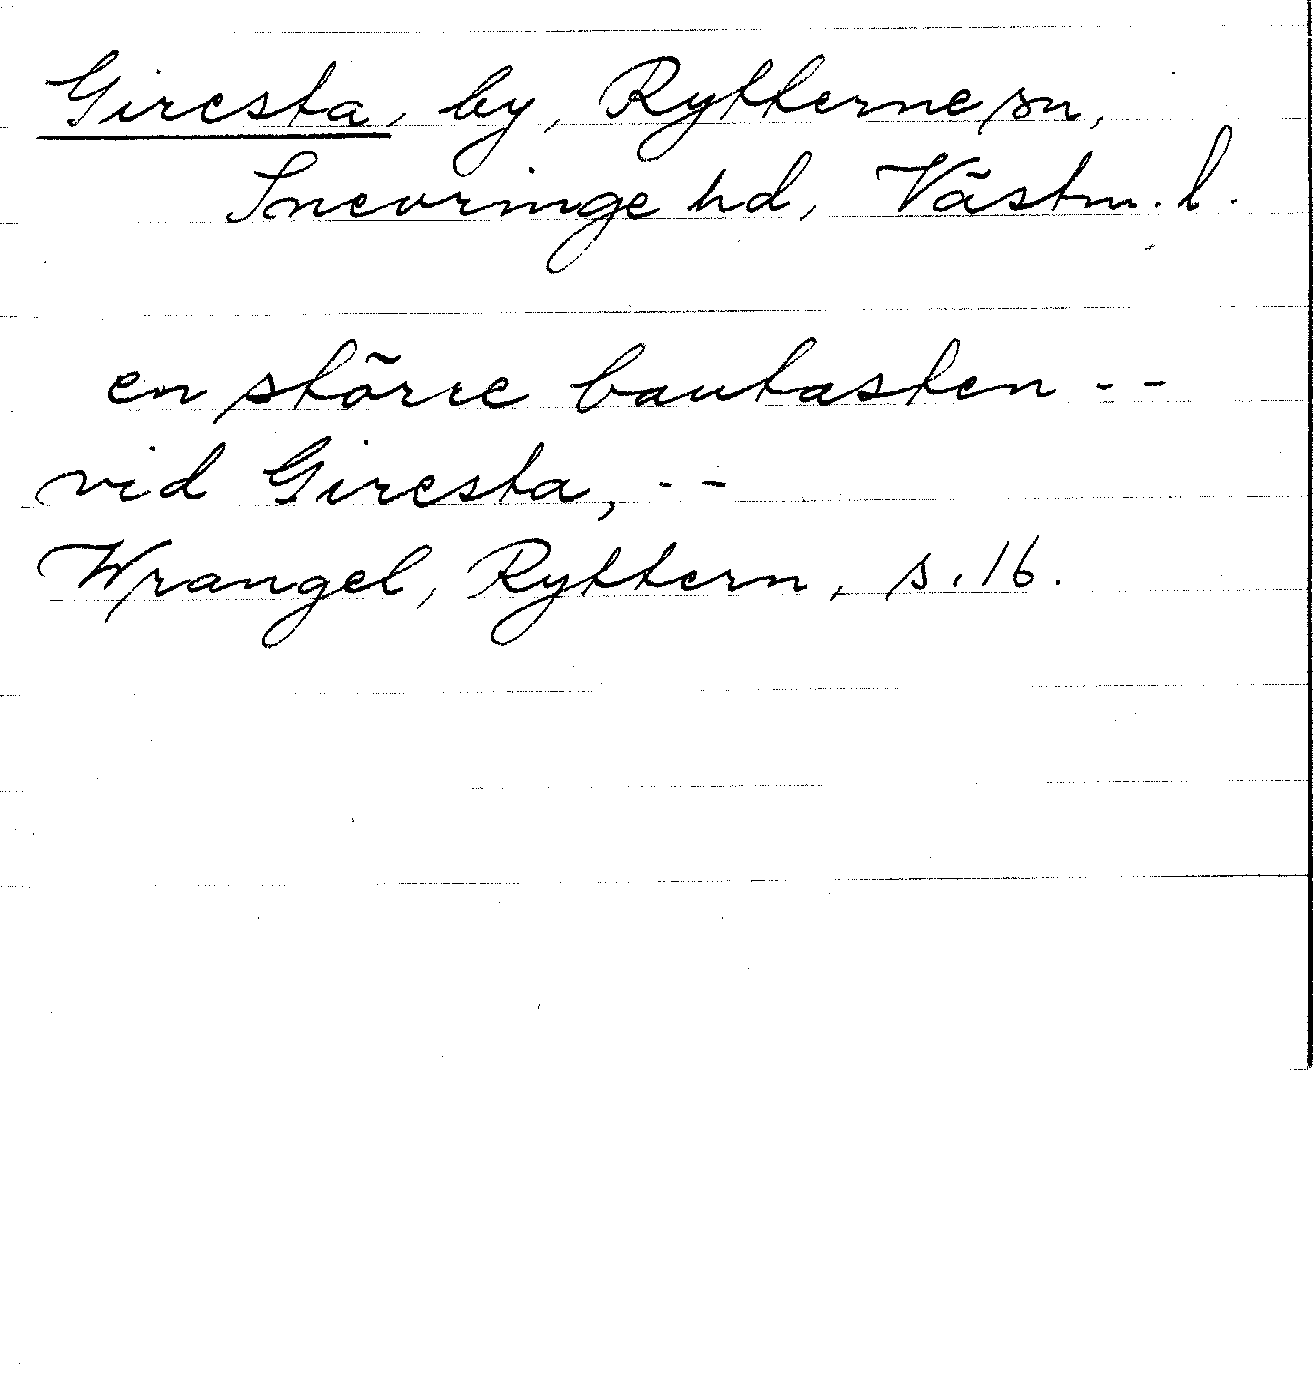 Giresta, by, Rytterne sn,
Snevringe hd, Västm. l.
en större bautasten - -
vid Giresta, - -
Wrangel, Ryttern, s. 16.